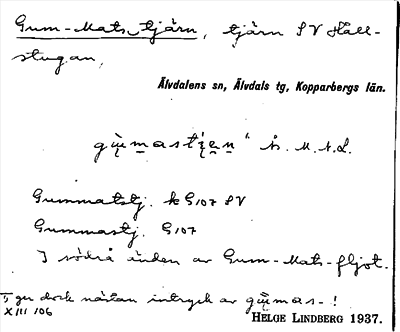 Gum-Mats tjärn, tjärn SV Håll-
stugan,
Älvdalens sn, Älvdals tg, Kopparbergs län.
Gummatstj. k G107 SV
Gummastj. G107
I södra änden av Gum-Mats-fljot.
ger dock nästan intryck av gu̇mas-!
XIII 106
HELGE LINDBERG 1937.